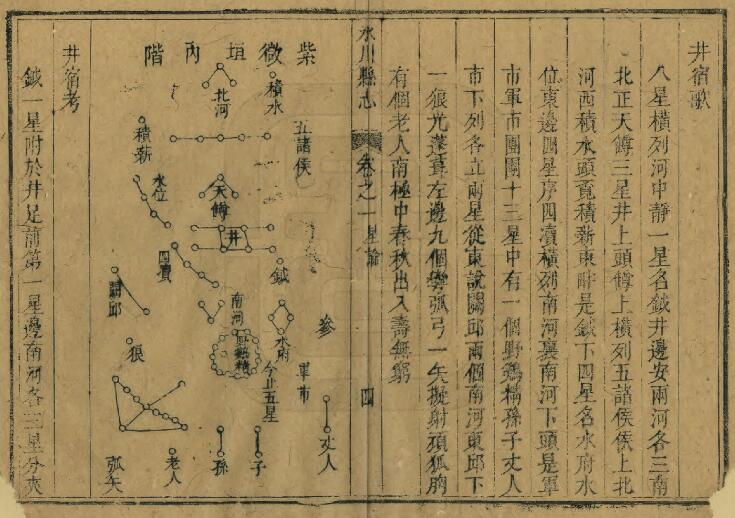 井宿歌
八星橫列河中靜一星名鉞井邊安兩河各三南
北正天罇三星井上頭罇上橫列五諸侯侯上北
河西積水頭覓積薪東畔是鉞下四星名水府水
位東邊四星序四瀆橫列南河裏南河下頭是軍
市軍市團圓十三星中有一個野鷄精孫子丈人
市下列各立兩星從東說闕邱兩個南河東邱下
一狼光蓬茸左邊九個彎弧弓一矢擬射頑狼胸
有個老人南極中春秋出入壽無窮
永川縣志
卷之一
星論
四
紫微垣內階
積水
北河
五諸侯
積薪
水位
天罇
井
四瀆
鉞
參
闕邱
南河
水府
野鷄精
今止五星
軍市
狼
丈人
子
孫
老人
弧矢
井宿考
鉞一星附於井足前第一星邊南河各三星分夾